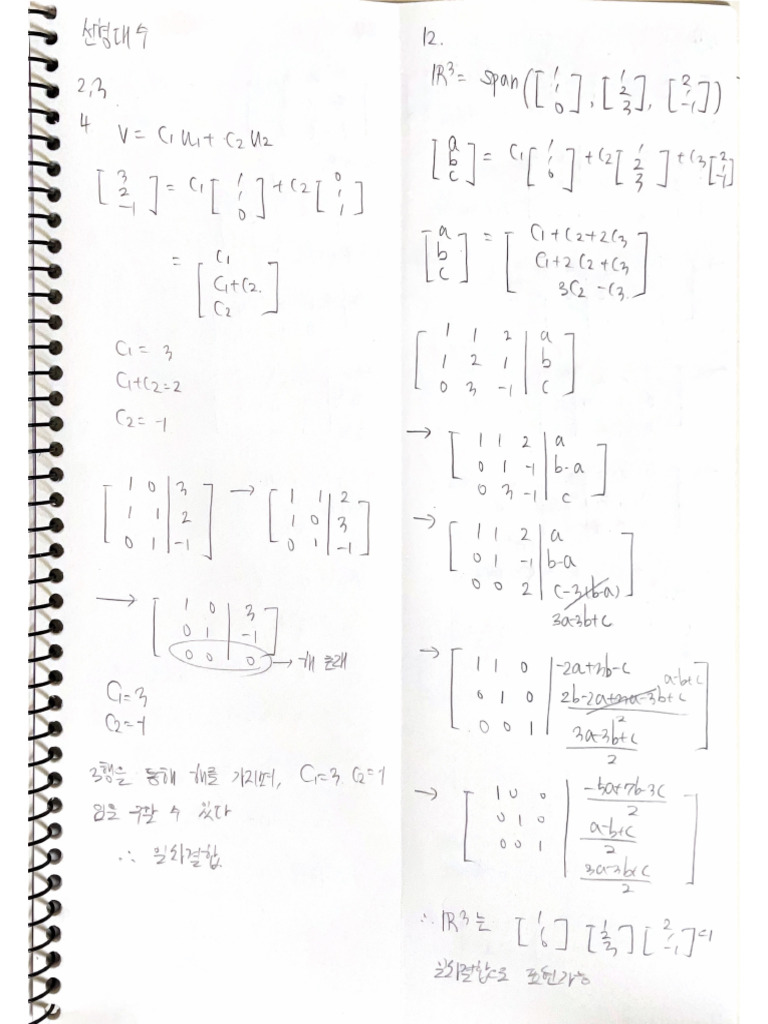 선형대수
2,3
4 V = C₁u₁ + C₂u₂
[3 2 -1] = C₁[1 1 0] + C₂[0 1 1]
= [C₁ C₁+C₂ C₂]
C₁ = 3
C₁+C₂=2
C₂ = -1
[1 0 | 3] → [1 1 | 2]
[1 1 | 2] [1 0 | 3]
[0 1 | -1] [0 1 | -1]
→ [1 0 | 3]
[0 1 | -1]
[0 0 | 0] → 해 존재
C₁=3
C₂=-1
3행을 통해 해를 가지며, C₁=3 C₂=-1
임을 구할 수 있다
∴ 일차결합
12.
ℝ³ = span([1 1 0], [1 2 3], [2 1 -1])
[a b c] = C₁[1 1 0] + C₂[1 2 3] + C₃[2 1 -1]
[a b c] = [C₁+C₂+2C₃
C₁+2C₂+C₃
3C₂-C₃]
[1 1 2 | a]
[1 2 1 | b]
[0 3 -1 | c]
→ [1 1 2 | a]
[0 1 -1 | b-a]
[0 3 -1 | c]
→ [1 1 2 | a]
[0 1 -1 | b-a]
[0 0 2 | c-3(b-a)]
3a-3b+c
→ [1 1 0 | -2a+3b-c]
[0 1 0 | 2b-2a+3a-3b+c a-b+c / 2]
[0 0 1 | 3a-3b+c / 2]
→ [1 0 0 | -5a+7b-3c / 2]
[0 1 0 | a-b+c / 2]
[0 0 1 | 3a-3b+c / 2]
∴ ℝ³는 [1 1 0] [1 2 3] [2 1 -1]의
일차결합으로 표현가능